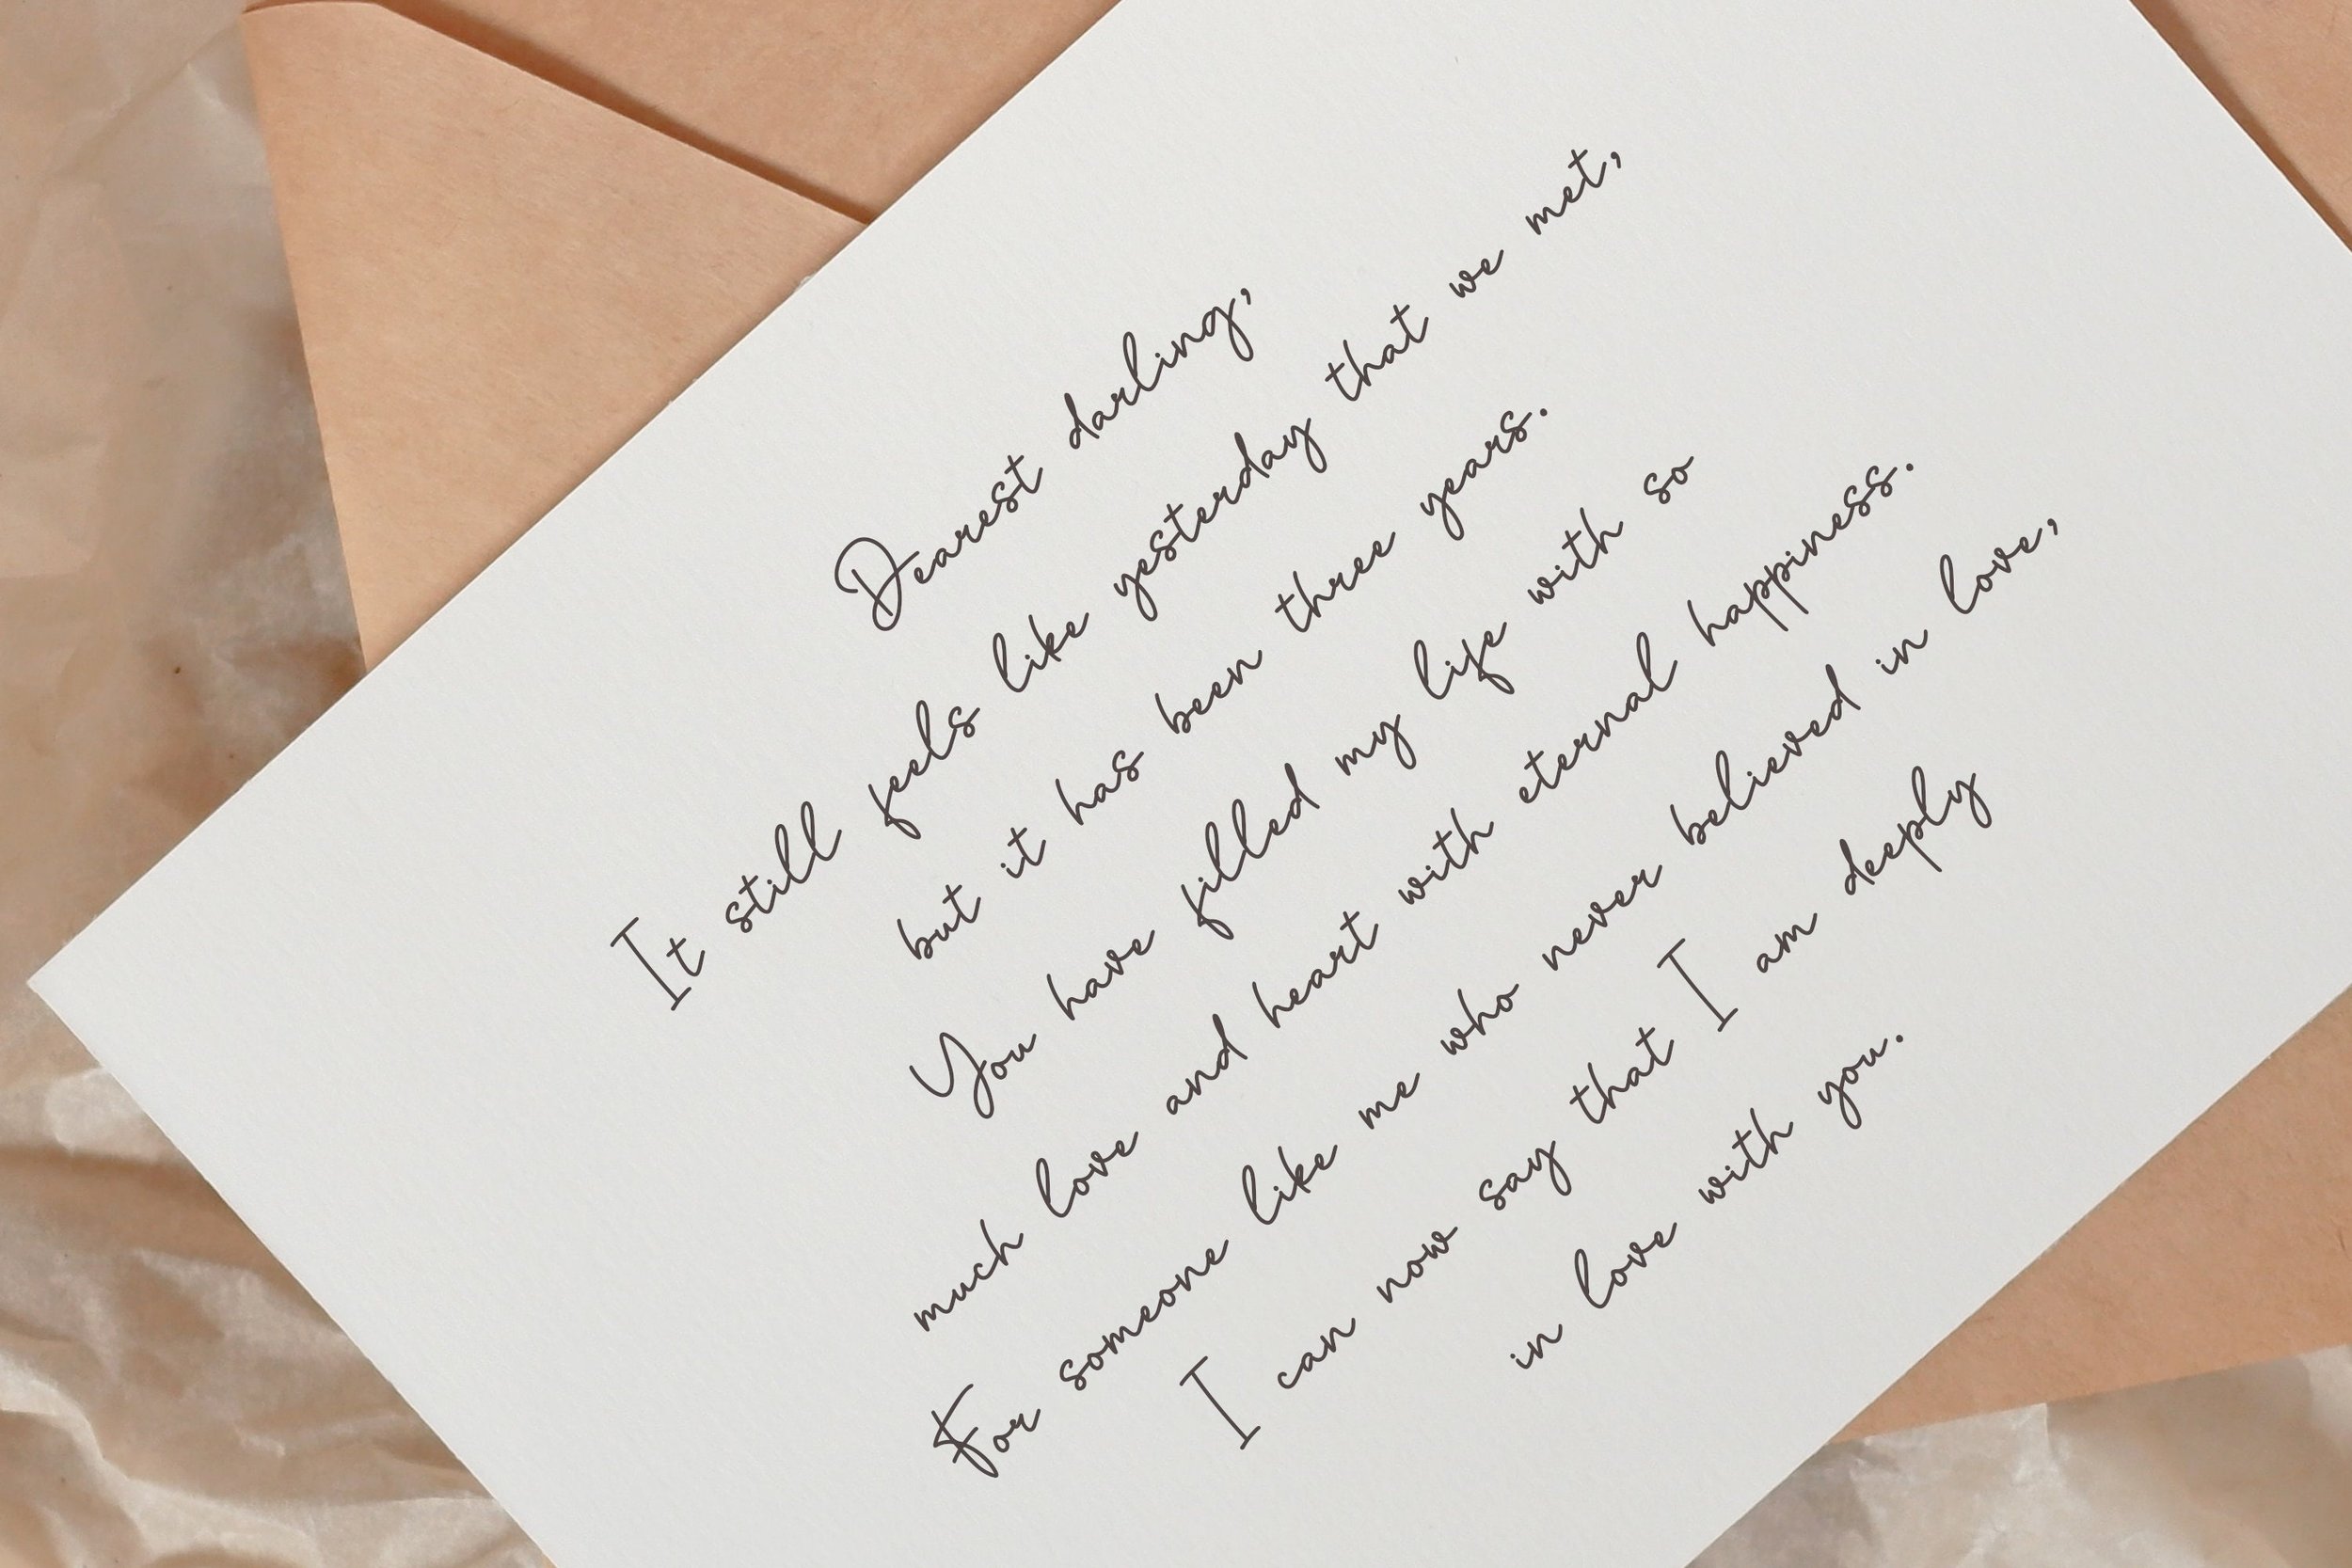 Dearest darling,
It still feels like yesterday that we met,
but it has been three years.
You have filled my life with so
much love and heart with eternal happiness.
For someone like me who never believed in love,
I can now say that I am deeply
in love with you.